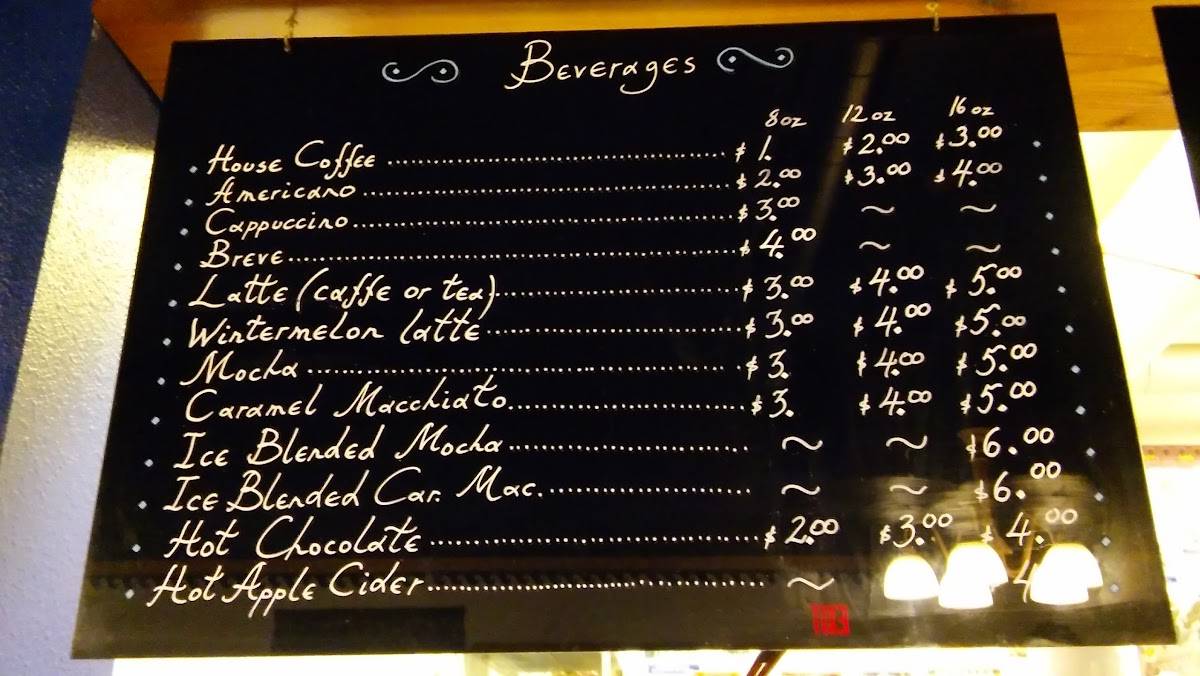 Beverages
8oz 12oz 16oz
House Coffee ........ $1. $2.00 $3.00
Americano ........ $2.00 $3.00 $4.00
Cappuccino ........ $3.00 ~ ~
Breve ........ $4.00 ~ ~
Latte (caffe or tea) ........ $3.00 $4.00 $5.00
Wintermelon latte ........ $3.00 $4.00 $5.00
Mocha ........ $3. $4.00 $5.00
Caramel Macchiato ........ $3. $4.00 $5.00
Ice Blended Mocha ........ ~ ~ $6.00
Ice Blended Car. Mac. ........ ~ ~ $6.00
Hot Chocolate ........ $2.00 $3.00 $4.00
Hot Apple Cider ........ ~